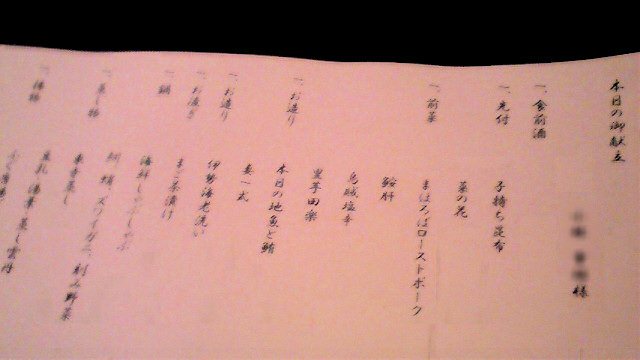 本日の御献立
様
一、食前酒
一、先付
子持ち昆布
菜の花
一、前菜
まほろばローストポーク
鮟肝
烏賊塩辛
里芋田楽
一、お造り
本日の地魚と鮪
妻一式
一、お造り
伊勢海老洗い
一、お凌ぎ
まご茶漬け
一、鍋
海鮮しゃぶしゃぶ
ズワイガニ、刻み野菜
一、蒸し物
東寺蒸し
一、
豆乳、湯葉、蒸し雲丹